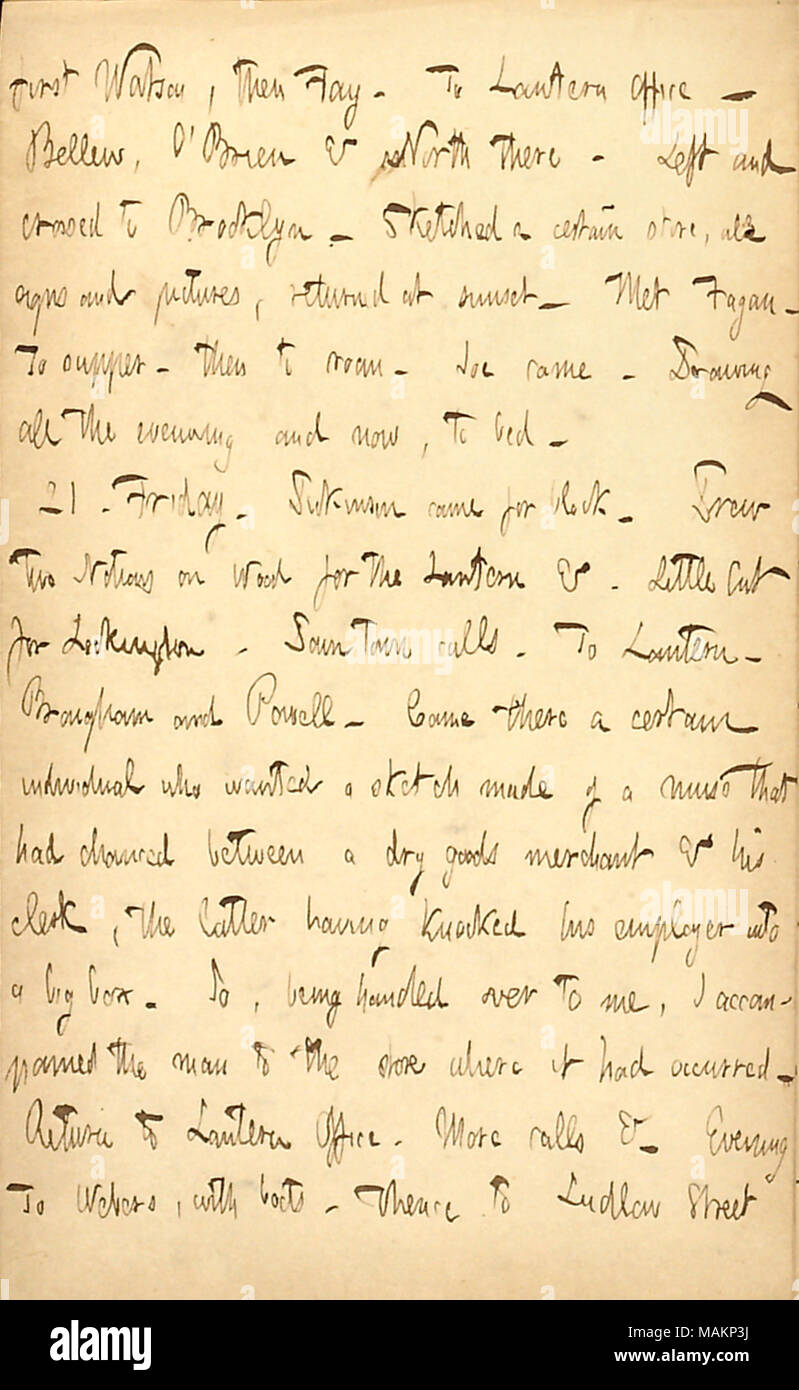 first Watson, then Fay. To Lantern Office —
Bellew, O'Brien & North there. Left and
crossed to Brooklyn. Sketched a certain store, all
signs and pictures, returned at sunset. Met Fagan.
To supper. then to room. Joe came. Drawing
all the evening and now, to bed.
21. Friday. Dickinson came for block. Drew
two Notions on Wood for the Lantern &. Little Cut
for Lockington. Down Town calls. To Lantern.
Brougham and Powell. Came there a certain
individual who wanted a sketch made of a muss that
had chanced between a dry goods merchant & his
clerk, the latter having knocked his employer into
a big box. So, being handed over to me, I accom-
panied the man to the store where it had occurred.
Return to Lantern Office. More calls &. Evening
To Webers, with boots. Thence to Ludlow Street
alamy
Image ID: MAKP3J
www.alamy.com